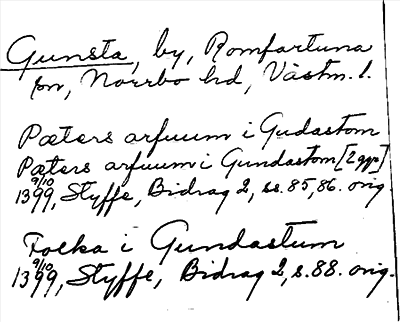 Gunsta, by, Romfartuna
sn, Norrbo hd, Västm. l.
Pæters arfuum i Gudastom
Pæters arfuum i Gundastom [2 ggr]
9/10
1399, Styffe, Bidrag 2, ss. 85, 86. orig.
Folka i Gundastum
9/10
1399, Styffe, Bidrag 2, s. 88. orig.